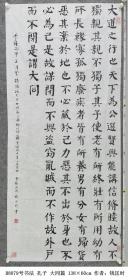 大道之行也天下為公選賢與能講信修睦故人不
獨親其親不獨子其子使老有所終壯有所用幼有
所長矜寡孤獨廢疾者皆有所養男有分女有歸貨
惡其棄於地也不必藏於己力惡其不出於身也不必
為己是故謀閉而不興盜竊亂賊而不作故外戶
而不閉是謂大同
B0079号书法 孔子 大同篇 138×60cm 作者：